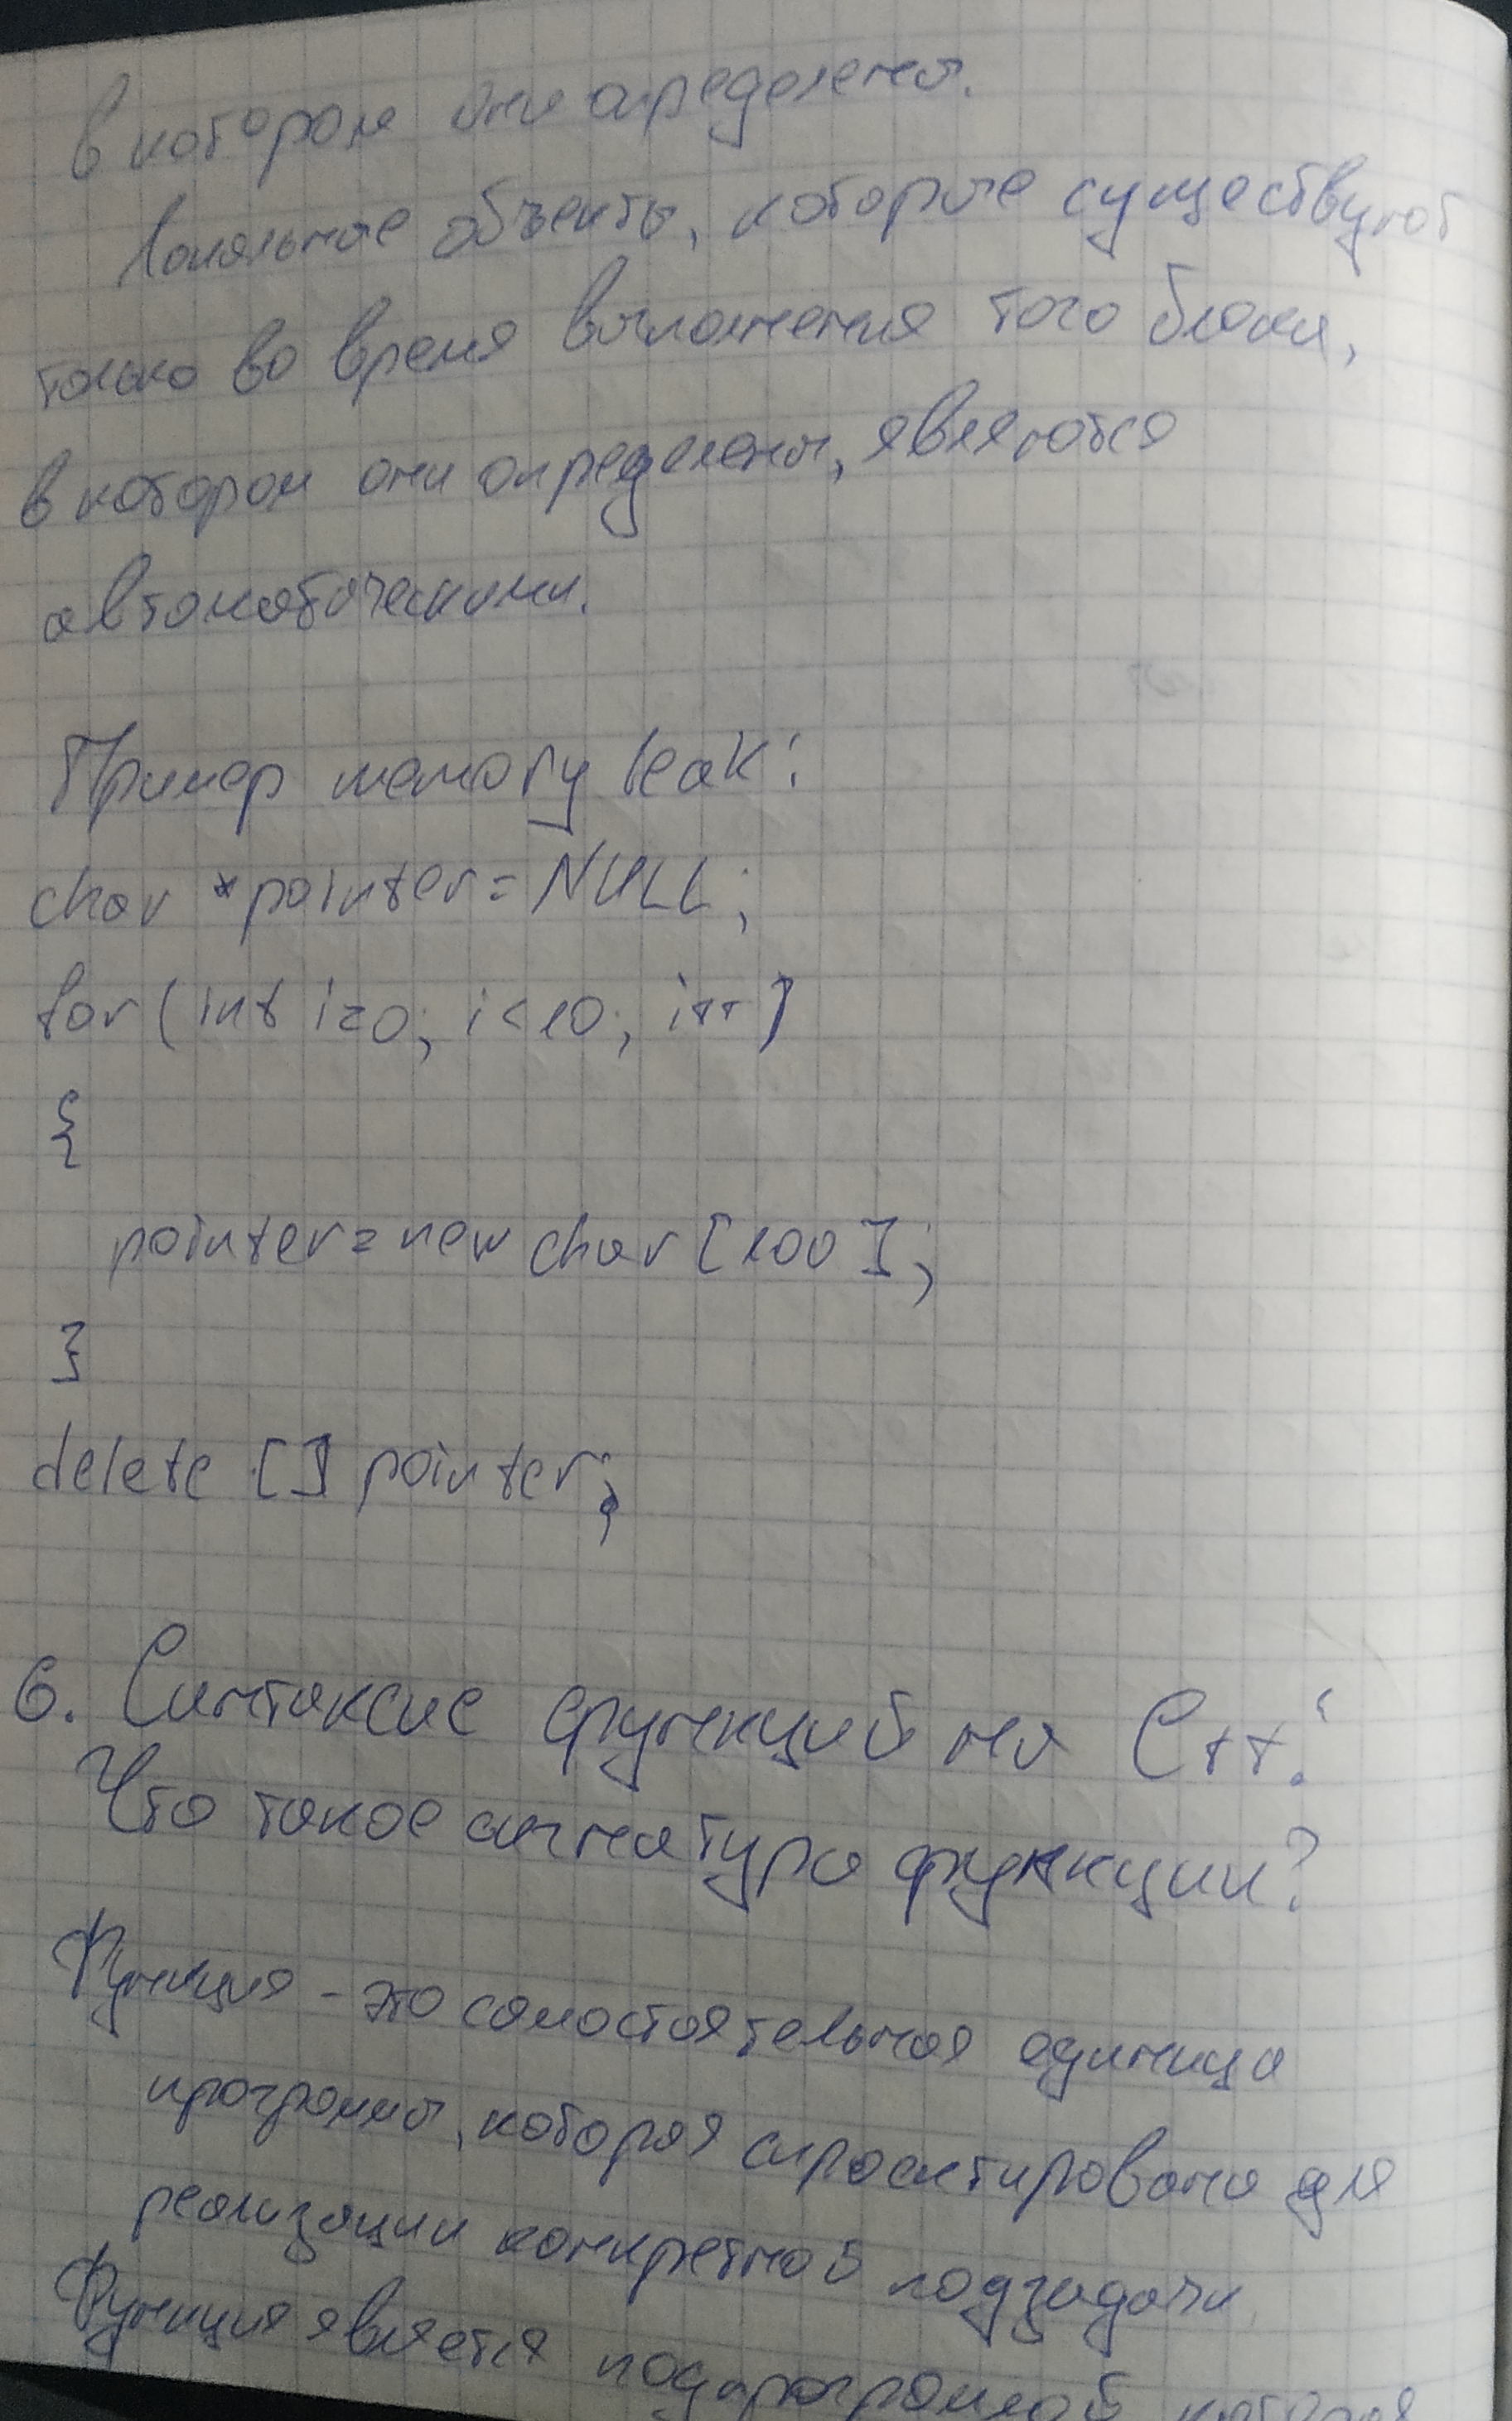 в котором они определены.
Локальные объекты, которые существуют
только во время выполнения того блока,
в котором они определены, являются
автоматическими.
Пример memory leak:
char *pointer = NULL;
for (int i=0; i<10; i++)
{
pointer = new char [100];
}
delete [] pointer;
6. Синтаксис функций на C++.
Что такое сигнатура функции?
Функция - это самостоятельная единица
программы, которая спроектирована для
реализации конкретной подзадачи.
Функция является подпрограммой которая